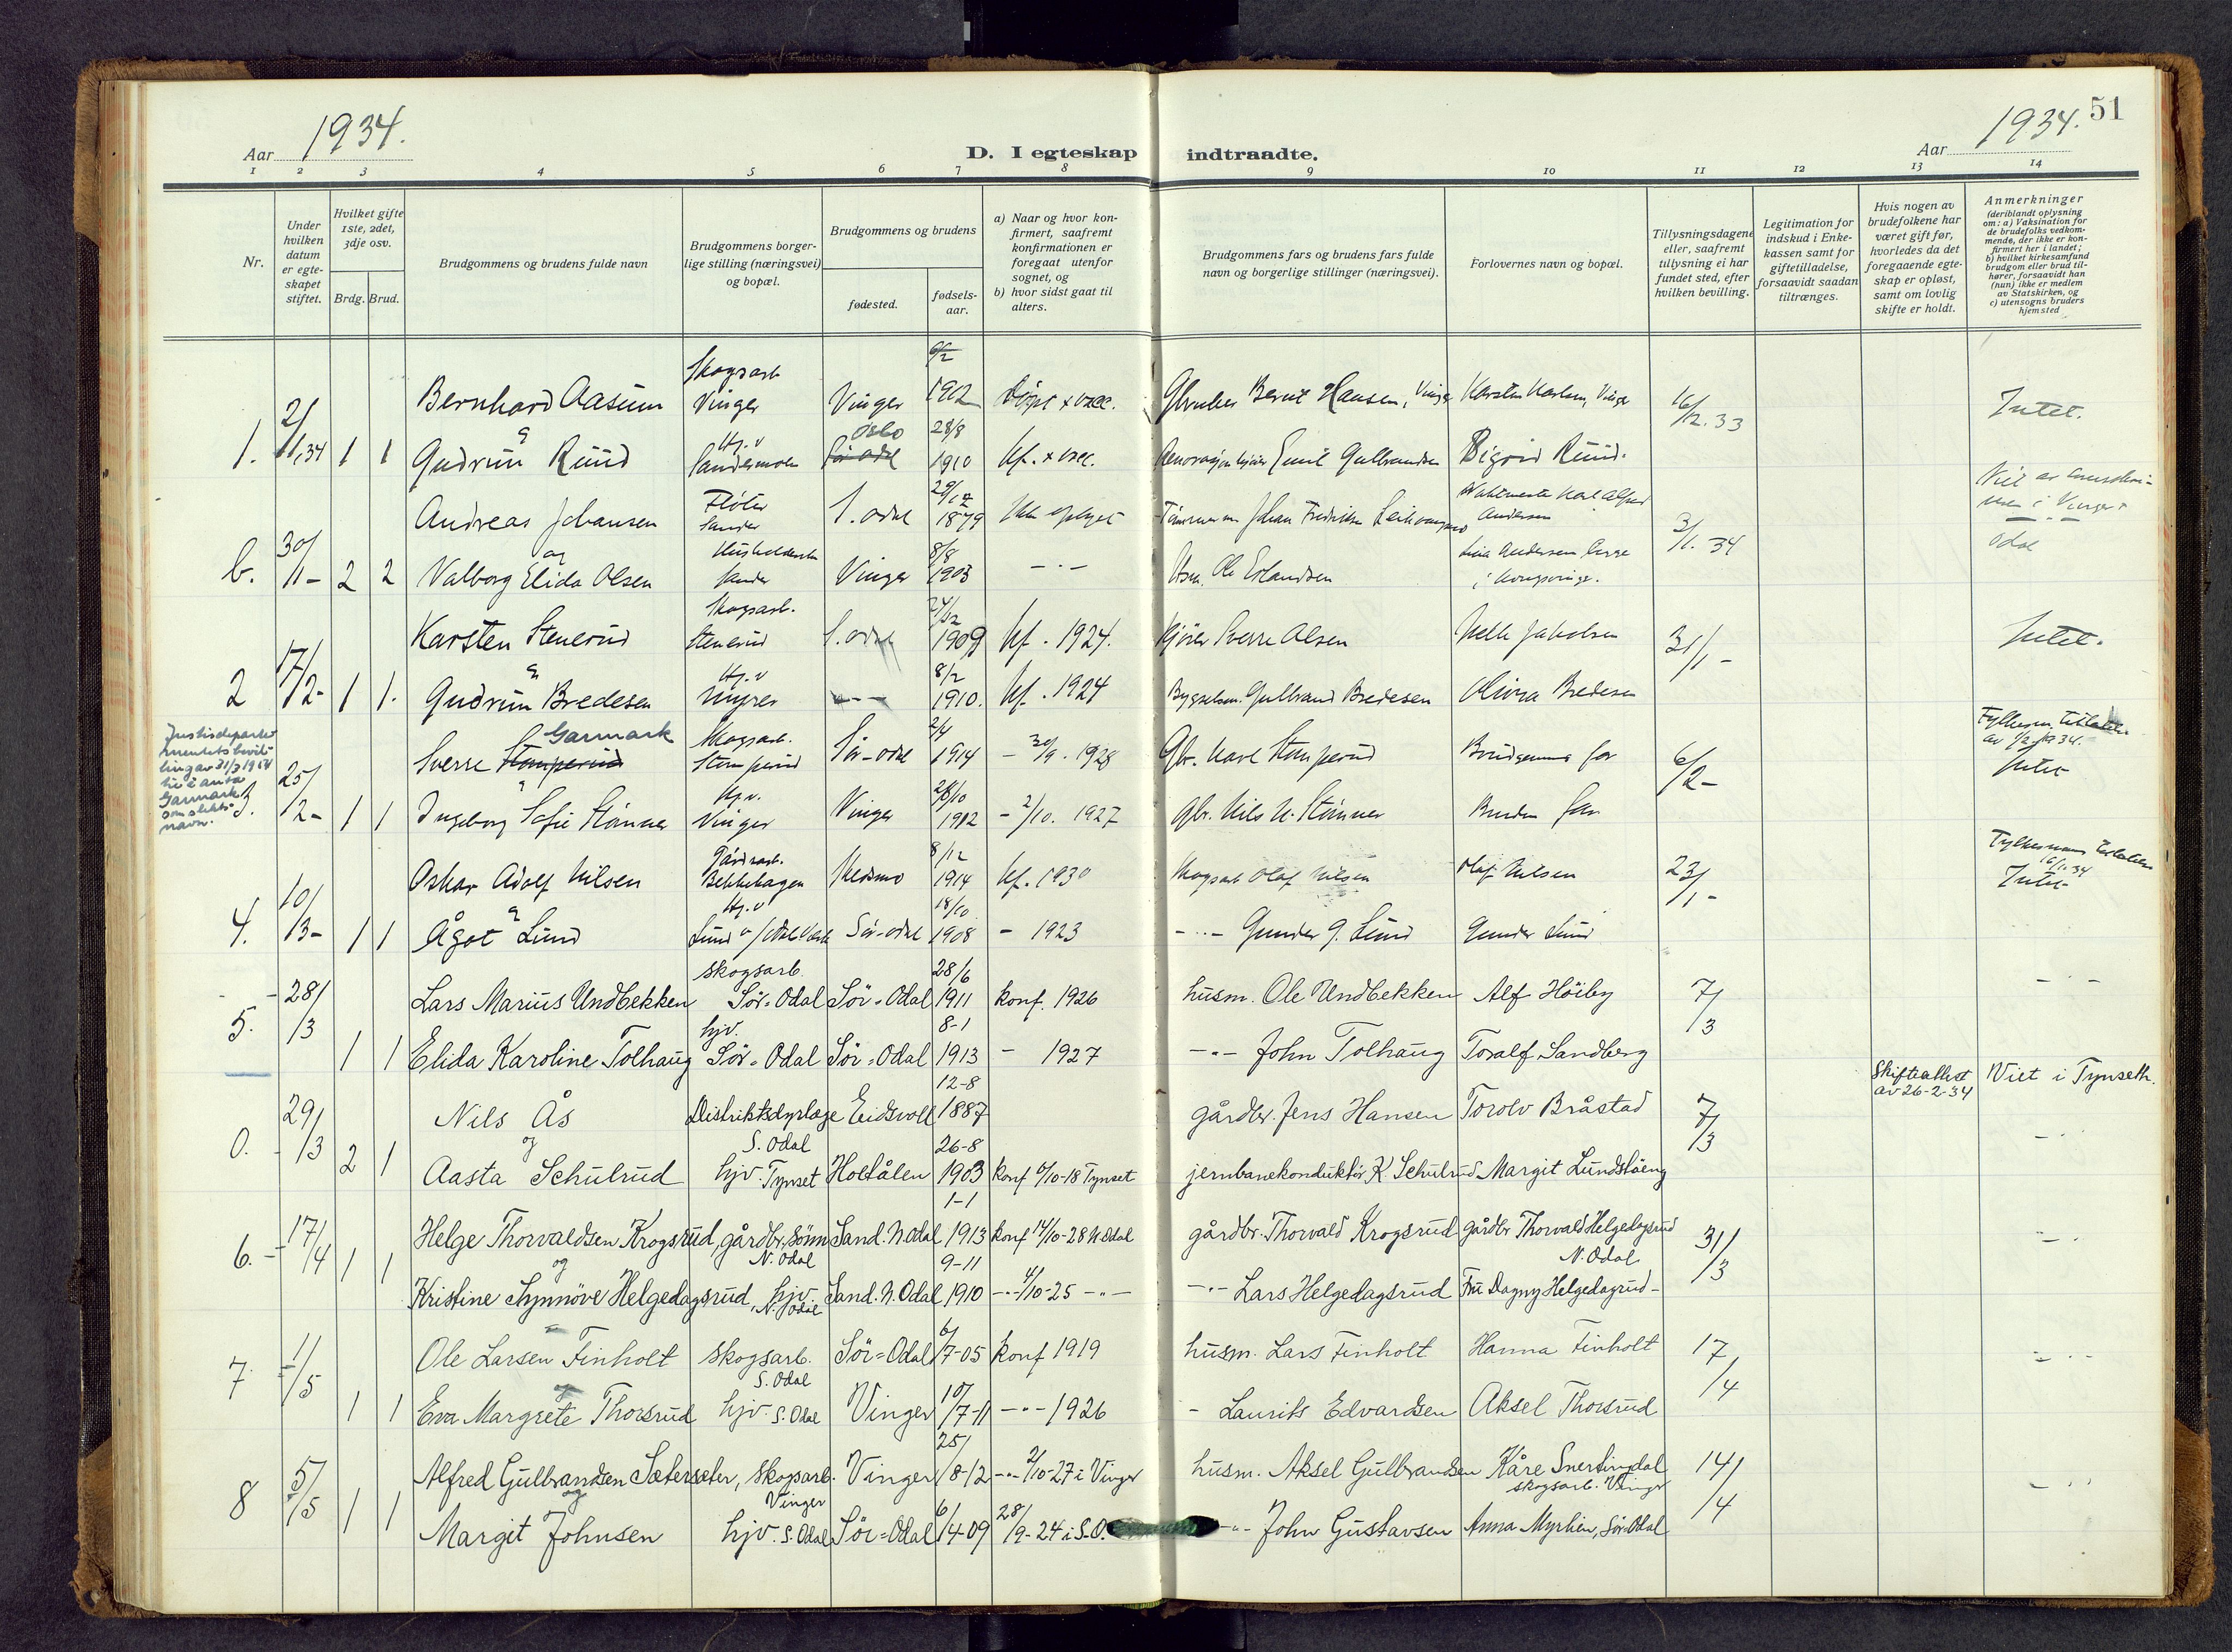 Aar 1934.
D. I egteskap indtraadte.
Aar 1934. 51
1 2 3 4 5 6 7 8 9 10 11 12 13 14
Nr.
Under hvilken datum er egteskapet stiftet.
Hvilket gifte 1ste, 2det, 3dje osv.
Brdg. Brud.
Brudgommens og brudens fulde navn
Brudgommens borgerlige stilling (næringsvei) og bopæl.
Brudgommens og brudens
fødested.
fødselsaar.
a) Naar og hvor konfirmert, saafremt konfirmationen er foregaat utenfor sognet, og
b) hvor sidst gaat til alters.
Brudgommens fars og brudens fars fulde navn og borgerlige stillinger (næringsvei).
Forlovernes navn og bopæl.
Tillysningsdagene eller, saafremt tillysning ei har fundet sted, efter hvilken bevilling.
Legitimation for indskud i Enkekassen samt for giftetilladelse, forsaavidt saadan tiltrænges.
Hvis nogen av brudefolkene har været gift før, hvorledes da det foregaaende egteskap er opløst, samt om lovlig skifte er holdt.
Anmerkninger
(deriblandt oplysning om: a) Vaksination for de brudefolks vedkommende, der ikke er konfirmert her i landet;
b) hvilket kirkesamfund brudgom eller brud tilhører, forsaavidt han (hun) ikke er medlem av Statskirken, og
c) utensogns bruders hjemsted
Skogsarb
Bernhard Aasum Vinger Vinger 1912 Bernt Hansen, Vinger 16/12.33 Intet.
1. 2/1.34 1 1 Gudrun Ruud Hj.v Oslo 28/8 1910 Emil Gulbrandsen Sigrid Ruud.
Andreas Johansen Fløter Sander S. odal 29/12 1879 3/1. 34
b. 30/1- 2 2 og Valborg Elida Olsen Sander Vinger 8/8 1903 -"- Ole Erlandsen Lina Andersen
Karsten Stenerud Skogsarb. Stenerud S. odal 1909 kf. 1924. Kjører Sverre Olsen 31/1- Intet.
2 17/2- 1 1. Gudrun Bredesen Hj.v Myrer 8/2 1910. kf. 1924 Gulbrand Bredesen Olivia Bredesen
Justisdepartementets bevilling av 31/3 1954 til å anta Garmark som slektsnavn.
Garmark
Sverre Stomperud Skogsarb. Stomperud Sör-odal 2/4 1914 - 30/9. 1928 Gbr. Karl Stomperud Brudgommens far 6/2-
3. 25/2- 1 1 Ingeborg Sofie Stömner Hj.v. Vinger Vinger 28/10 1912 - 2/10. 1927 Gbr. Nils N. Stömner Brudens far
Intet
Oskar Adolf Nilsen Gårdsarb. Bekkehagen Skedsmo 8/12 1914 kf. 1930 Skogsarb Olaf Nilsen Olaf Nilsen 23/1- Intet
4. 10/3- 1 1 Ågot Lund Hj.v Sör-odal 18/10 1908 - 1923 -"- Gunder G. Lund Gunder Lund
5. 28/3 Lars Marius Undbekken skogsarb. Sör-Odal Sör-Odal 28/6 1911 konf. 1926 husm. Ole Undbekken Alf Höiby 7/3 -"-
1 1 Elida Karoline Tolhaug hjv. Sör-Odal Sör-Odal 8-1 1913 - 1927 -"- John Tolhaug Toralf Sandberg
0. 29/3 Nils Ås Distriktsdyrlæge S. Odal Eidsvoll 12-8 1887 gårdbr. Jens Hansen Torolv Bråstad 7/3 Skifteattest av 26-2-34 Viet i Tynseth.
2 1 og Aasta Schulrud hjv. Tynset Holtålen 26-8 1903 konf 6/10-18 Tynset jernbanekonduktör K. Schulrud Margit Lundståeng -"-
6. 17/4 Helge Thorvaldsen Krogsrud, gårdbr. sönn N. Odal Sand. N. Odal 1-1 1913 konf 14/10-28 N Odal gårdbr. Thorvald Krogsrud gårdbr Thorvald Helgedagsrud N. Odal 31/3 -"-
1 1 og Kristine Synnöve Helgedagsrud, hjv. N. Odal Sand. N. Odal 9-11 1910 -"- 4/10-25 -"- -"- Lars Helgedagsrud Fru Dagny Helgedagrud -
7 1/5 Ole Larsen Finholt skogsarb. S. Odal Sör-Odal 6/7-05 konf 1919 husm. Lars Finholt Hanna Finholt 17/4 -"-
1 1 og Eva Margrete Thorsrud hjv. S. Odal Vinger 10/7-11 -"- 1926 - Laurits Edvardsen Aksel Thorsrud
8 5/5 Alfred Gulbrandsen Sætersæter, skogsarb. Vinger Vinger 25/8-12 -"- 2/10-27 i Vinger husm. Aksel Gulbrandsen Kåre Snertingdal skogsarb. Vinger 14/4 -"-
1 1 og Margit Johnsen hjv. S. Odal Sör-Odal 6/4-09 28/9-24 i S.O. -"- John Gustavsen Anna Myrlien, Sör-Odal